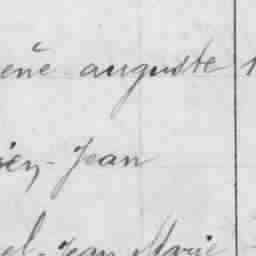 ené auguste
Jean
Jean Marie